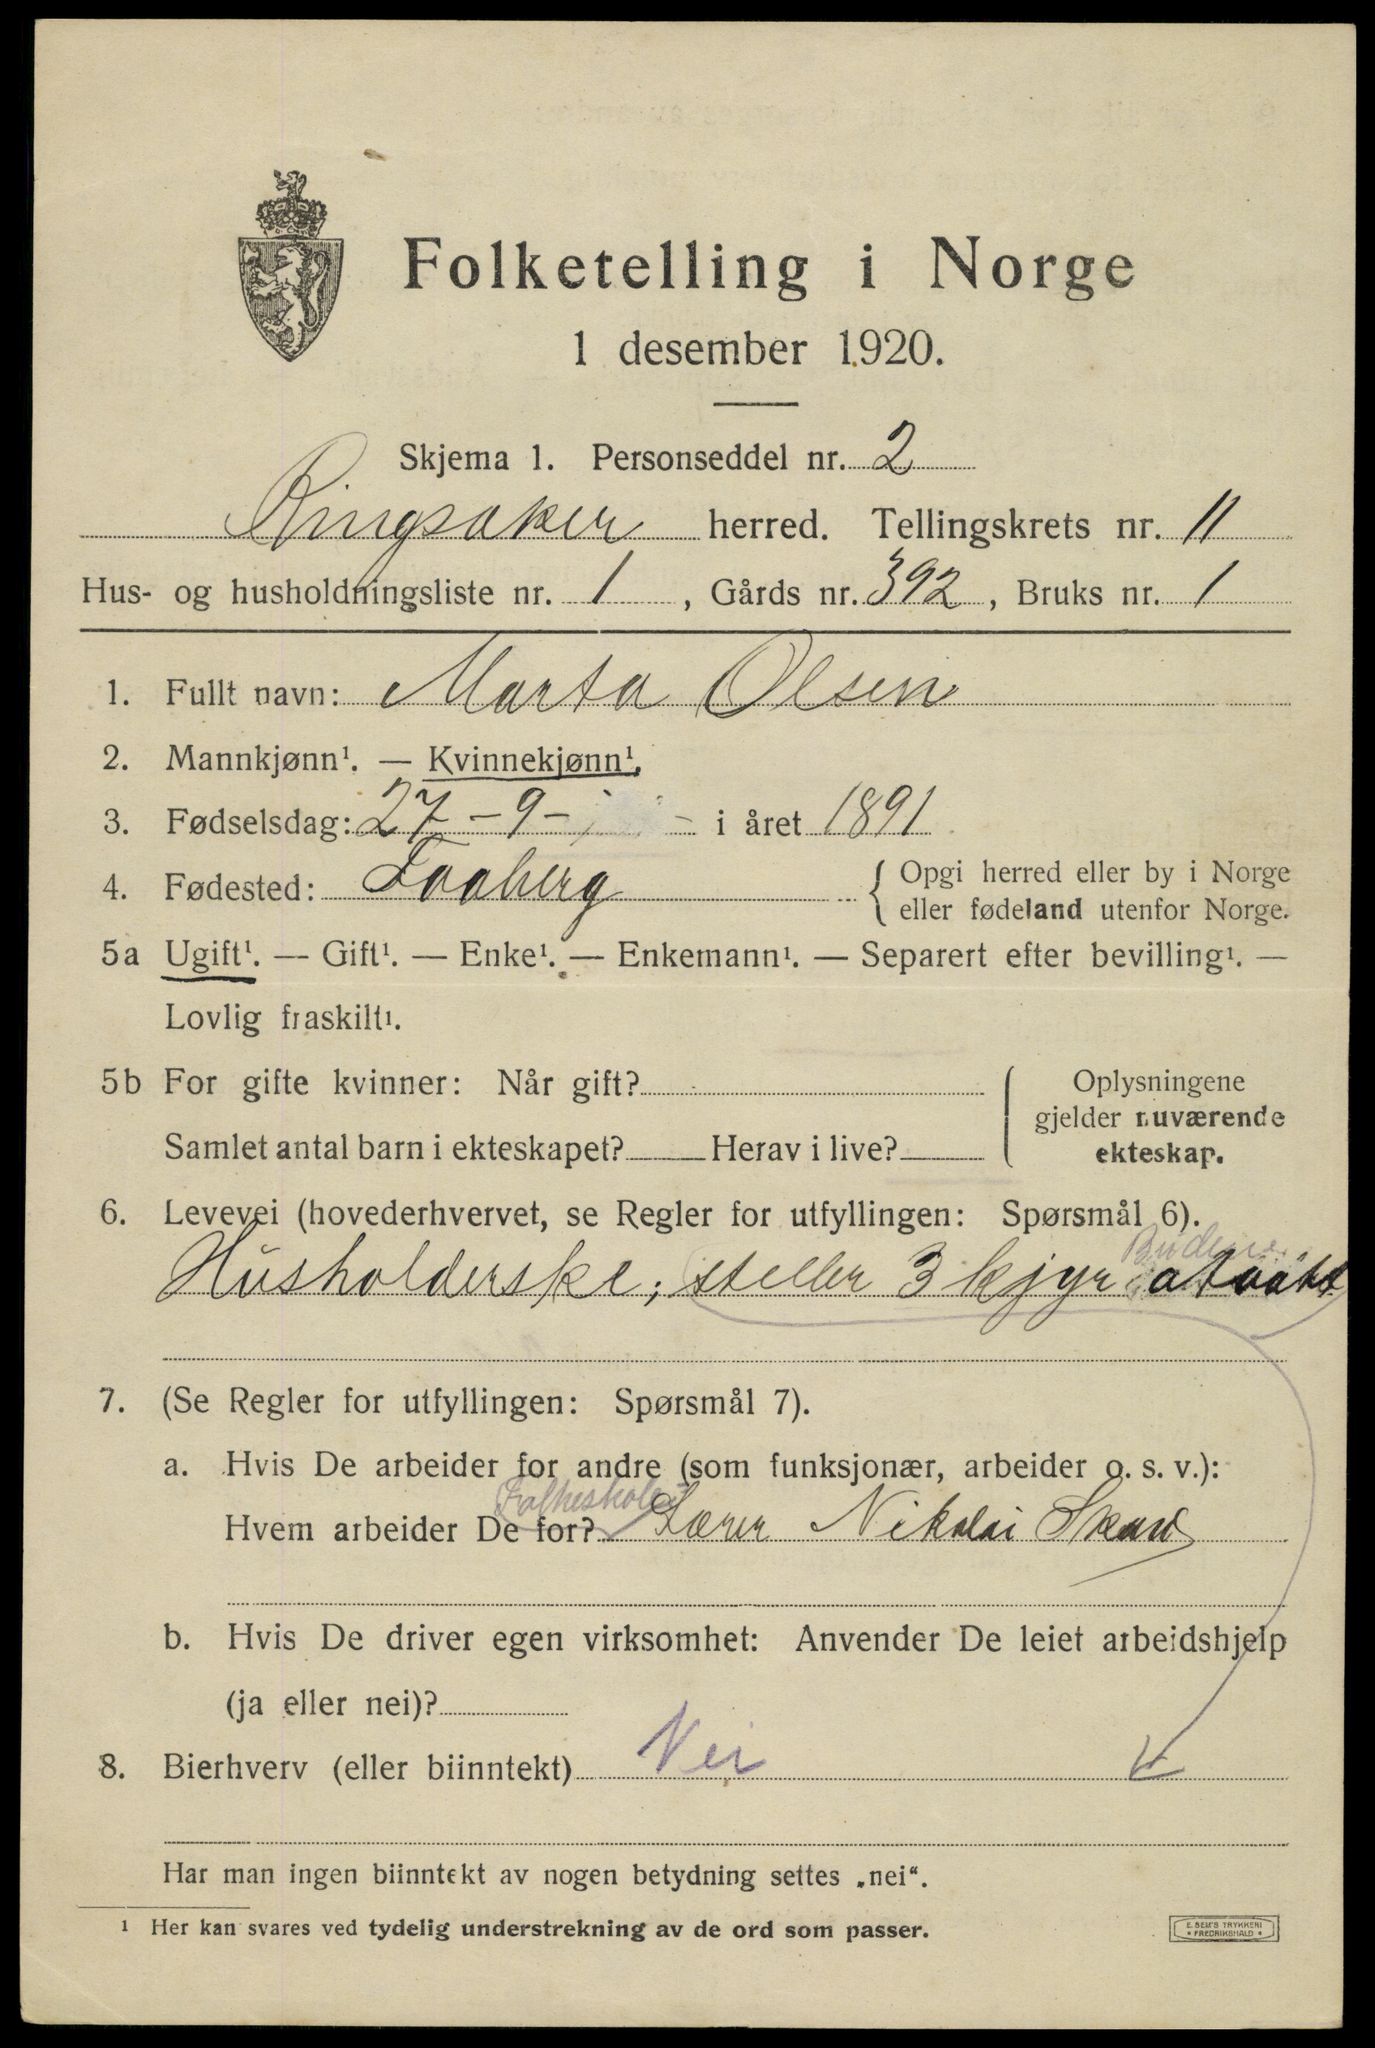 Folketelling i Norge
1 desember 1920.
Skjema 1. Personseddel nr. 2
Ringsaker herred. Tellingskrets nr. 11
Hus- og husholdningsliste nr. 1, Gårds nr. 392, Bruks nr. 1
1. Fullt navn: Marta Olsen
2. Mannkjønn¹. — Kvinnekjønn¹.
3. Fødselsdag: 27 - 9 - i året 1891
4. Fødested: Faaberg
Opgi herred eller by i Norge
eller fødeland utenfor Norge.
5a Ugift¹. — Gift¹. — Enke¹. — Enkemann¹. — Separert efter bevilling¹. —
Lovlig fraskilt¹.
5b For gifte kvinner: Når gift?
Samlet antal barn i ekteskapet? Herav i live?
Oplysningene
gjelder nuværende
ekteskap.
6. Levevei (hovederhvervet, se Regler for utfyllingen: Spørsmål 6).
Husholderske; steller 3 kjyr
7. (Se Regler for utfyllingen: Spørsmål 7).
a. Hvis De arbeider for andre (som funksjonær, arbeider o. s. v.):
Folkeskole
Hvem arbeider De for? Lærer Nikolai
b. Hvis De driver egen virksomhet: Anvender De leiet arbeidshjelp
(ja eller nei)?
8. Bierhverv (eller biinntekt) Nei
Har man ingen biinntekt av nogen betydning settes „nei“.
¹ Her kan svares ved tydelig understrekning av de ord som passer.
E. SEM'S TRYKKERI
• FREDRIKSHALD •